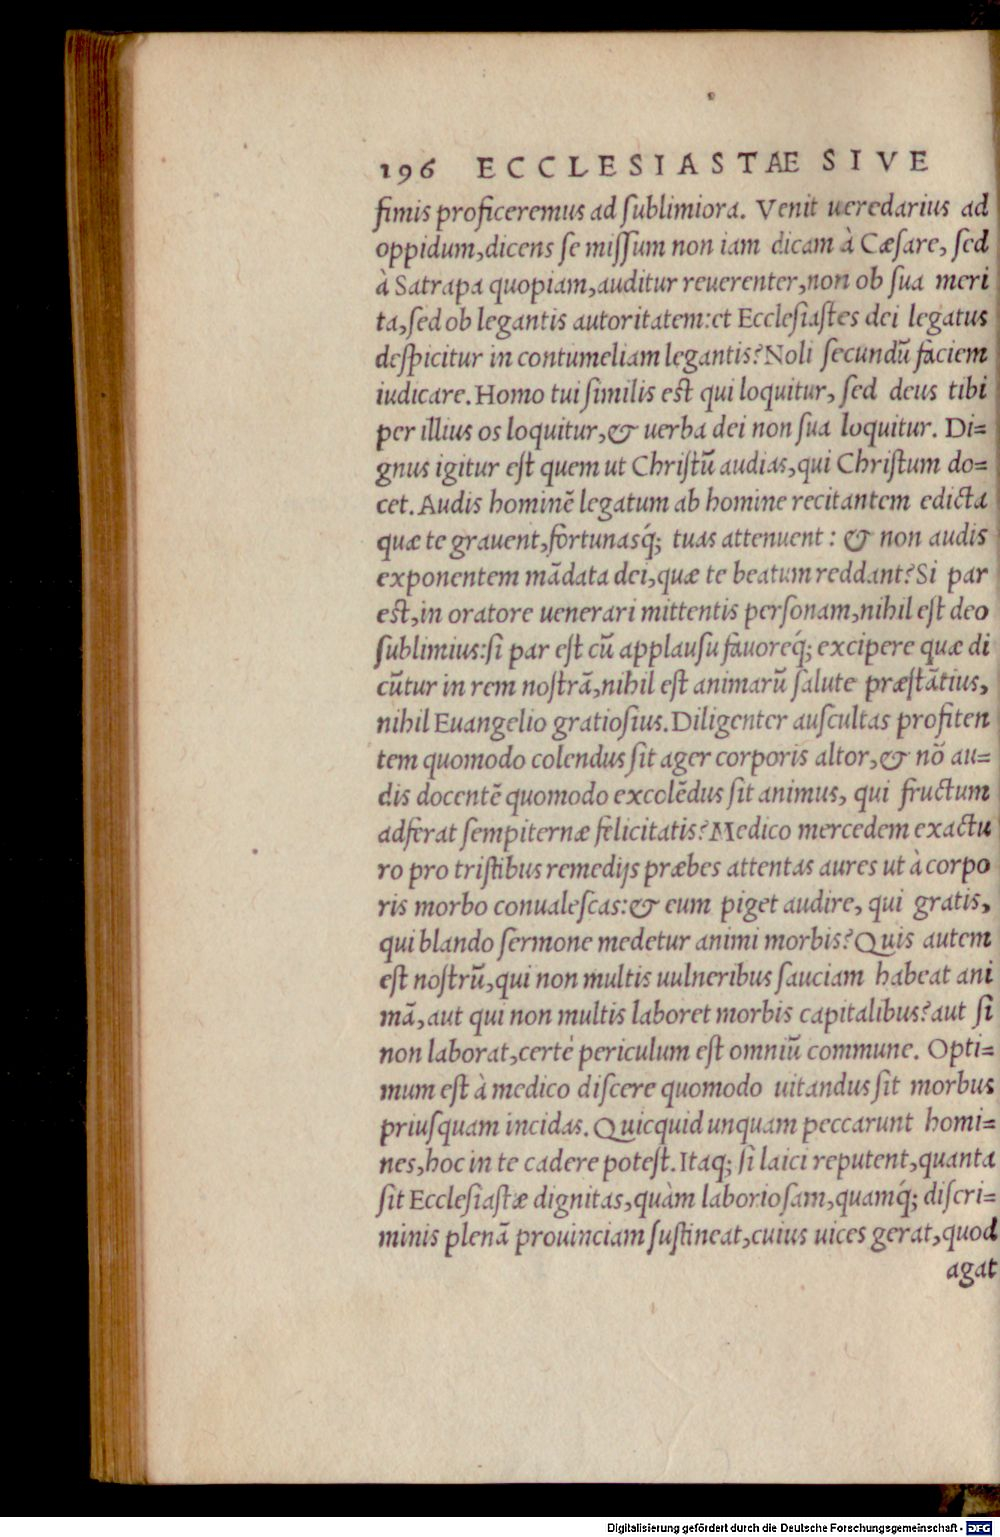 196 ECCLESIASTAE SIVE
fimis proficeremus ad ſublimiora. Venit ueredarius ad
oppidum, dicens ſe miſſum non iam dicam à Cæſare, ſed
à Satrapa quopiam, auditur reuerenter, non ob ſua meri
ta, ſed ob legantis autoritatem: et Eccleſiaſtes dei legatus
deſpicitur in contumeliam legantis? Noli ſecundũ faciem
iudicare. Homo tui ſimilis eſt qui loquitur, ſed deus tibi
per illius os loquitur, & uerba dei non ſua loquitur. Di=
gnus igitur eſt quem ut Chriſtũ audias, qui Chriſtum do=
cet. Audis hominẽ legatum ab homine recitantem edicta
quæ te grauent, fortunasq́; tuas attenuent: & non audis
exponentem mãdata dei, quæ te beatum reddant? Si par
eſt, in oratore uenerari mittentis perſonam, nihil eſt deo
ſublimius: ſi par eſt cũ applauſu fauoreq́; excipere quæ di
cũtur in rem noſtrã, nihil eſt animarũ ſalute præſtãtius,
nihil Euangelio gratioſius. Diligenter auſcultas profiten
tem quomodo colendus ſit ager corporis altor, & nõ au=
dis docentẽ quomodo excolẽdus ſit animus, qui fructum
adferat ſempiternæ felicitatis? Medico mercedem exactu
ro pro triſtibus remedijs præbes attentas aures ut à corpo
ris morbo conualeſcas: & eum piget audire, qui gratis,
qui blando ſermone medetur animi morbis? Quis autem
eſt noſtrũ, qui non multis uulneribus ſauciam habeat ani
mã, aut qui non multis laboret morbis capitalibus? aut ſi
non laborat, certè periculum eſt omniũ commune. Opti=
mum eſt à medico diſcere quomodo uitandus ſit morbus
priuſquam incidas. Quicquid unquam peccarunt homi=
nes, hoc in te cadere poteſt. Itaq; ſi laici reputent, quanta
ſit Eccleſiaſtæ dignitas, quàm laborioſam, quamq́; diſcri=
minis plenã prouinciam ſuſtineat, cuius uices gerat, quod
agat
Digitalisierung gefördert durch die Deutsche Forschungsgemeinschaft - DFG